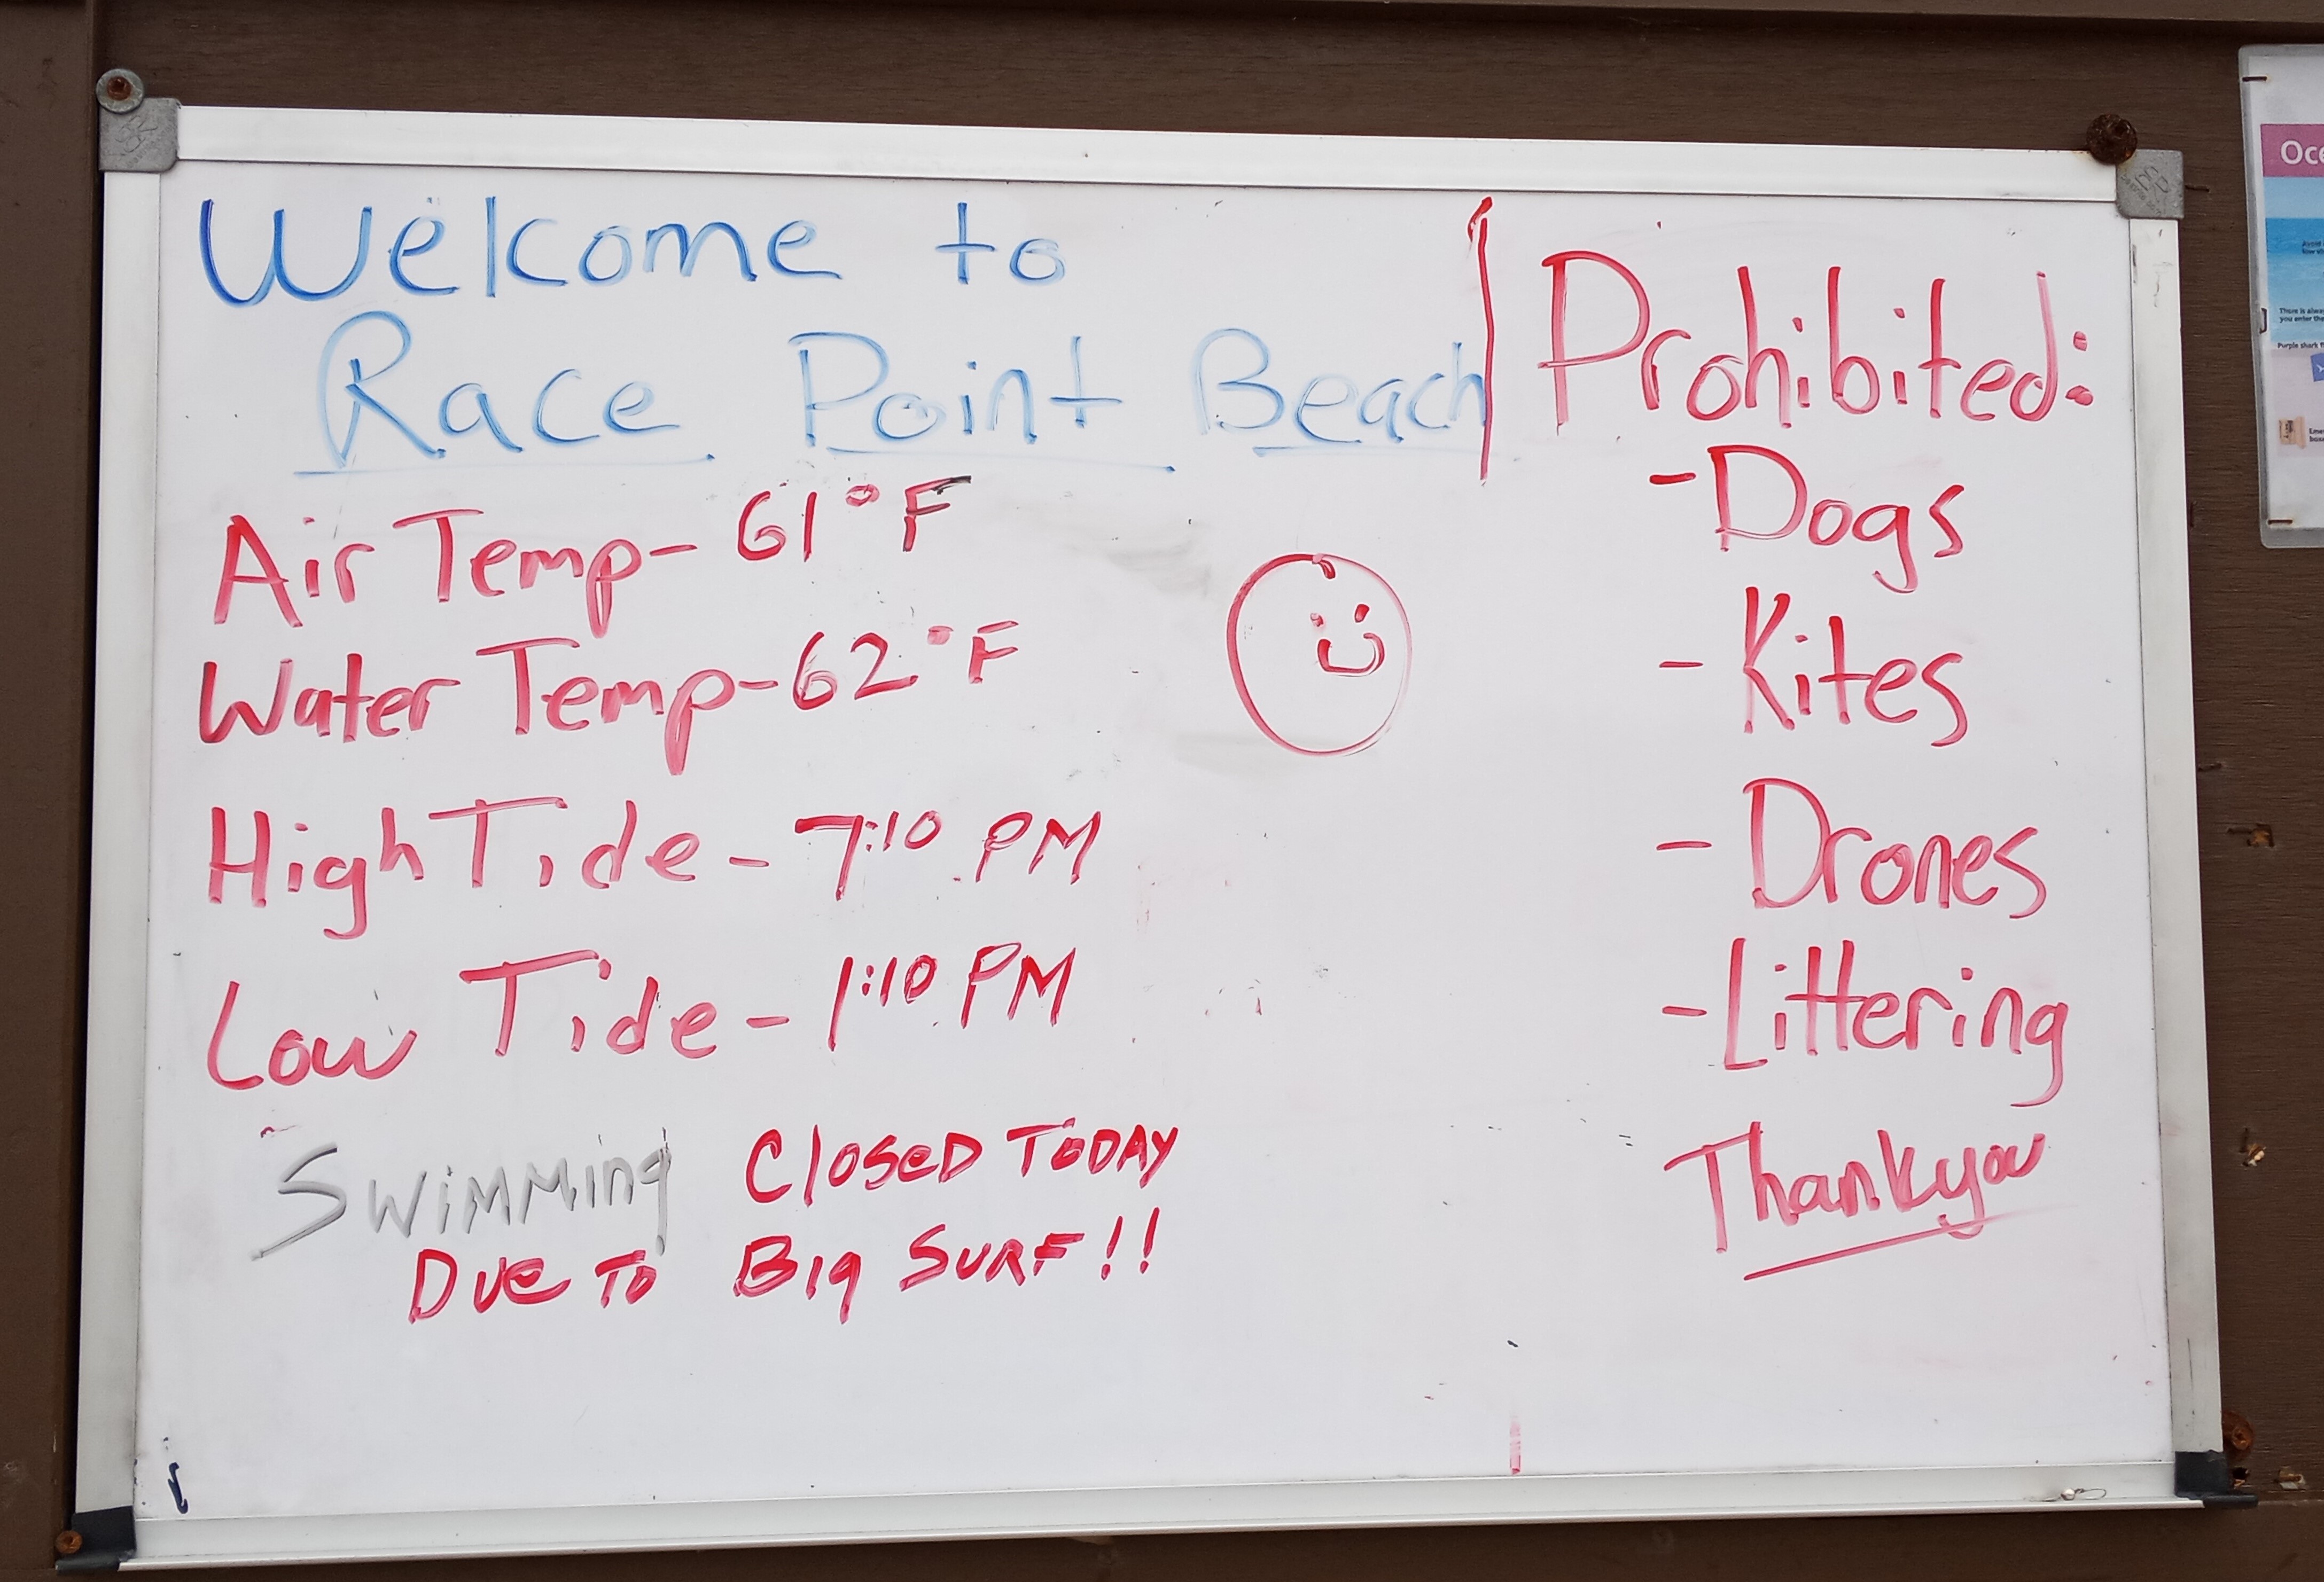 Welcome to
Race Point Beach
Air Temp - 61°F
Water Temp - 62°F
High Tide - 7:10 PM
Low Tide - 1:10 PM
Swimming Closed Today
Due To Big Surf!!
Prohibited:
- Dogs
- Kites
- Drones
- Littering
Thank you
Oce
There is alway
you enter the
Purple shark f